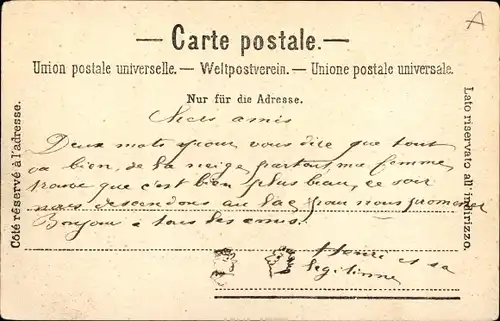 A
— Carte postale. —
Union postale universelle. — Weltpostverein. — Unione postale universale.
Nur für die Adresse.
Côté réservé à l'adresse.
Lato riservato all' indirizzo.
amis
Deux mots pour vous dire que tout
va bien, de la neige partout, ma femme
trouve que c'est bien plus beau, ce soir
nous descendons au lac pour nous promener
Bonjour à tous les amis!
Henri et sa
legitime